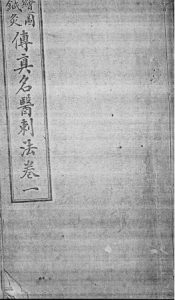 繪圖
鍼灸
傳真名醫刺法卷一